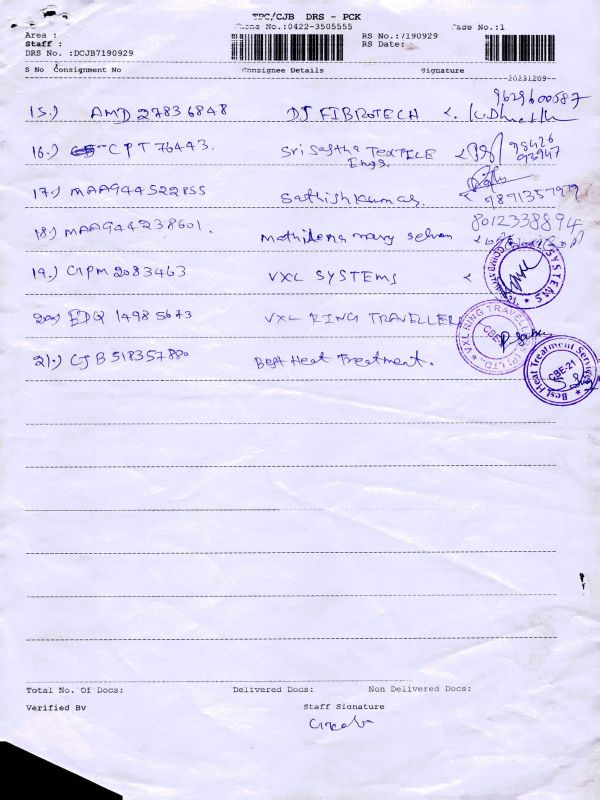 TPC/CJB DRS - PCK
Phone No.:0422-3505555
Area :
Staff :
DRS No. :DCJB7190929
RS No.:7190929
RS Date:
Page No.:1
S No Consignment No Consignee Details Signature
20231209
15.) AMD 27836848 DJ FIBROTECH 9629600587
16.) CPT 76443. Sri Sastha TEXTILE Engg. 98426 93947
17.) MAA944522855 Sathish Kumar. 9891357979
18.) MAA944238601. Mathilena mary selvan 8012338894
19.) GPM 2083463 VXL SYSTEMS
SYSTEMS
20) EDQ 14985673 VXL RING TRAVELLER
VXL RING TRAVELLERS (P) LTD., CBE
21.) CJB 518357880 Best Heat Treatment.
Best Heat Treatment Services CBE-21
Total No. Of Docs: Delivered Docs: Non Delivered Docs:
Verified By Staff Signature